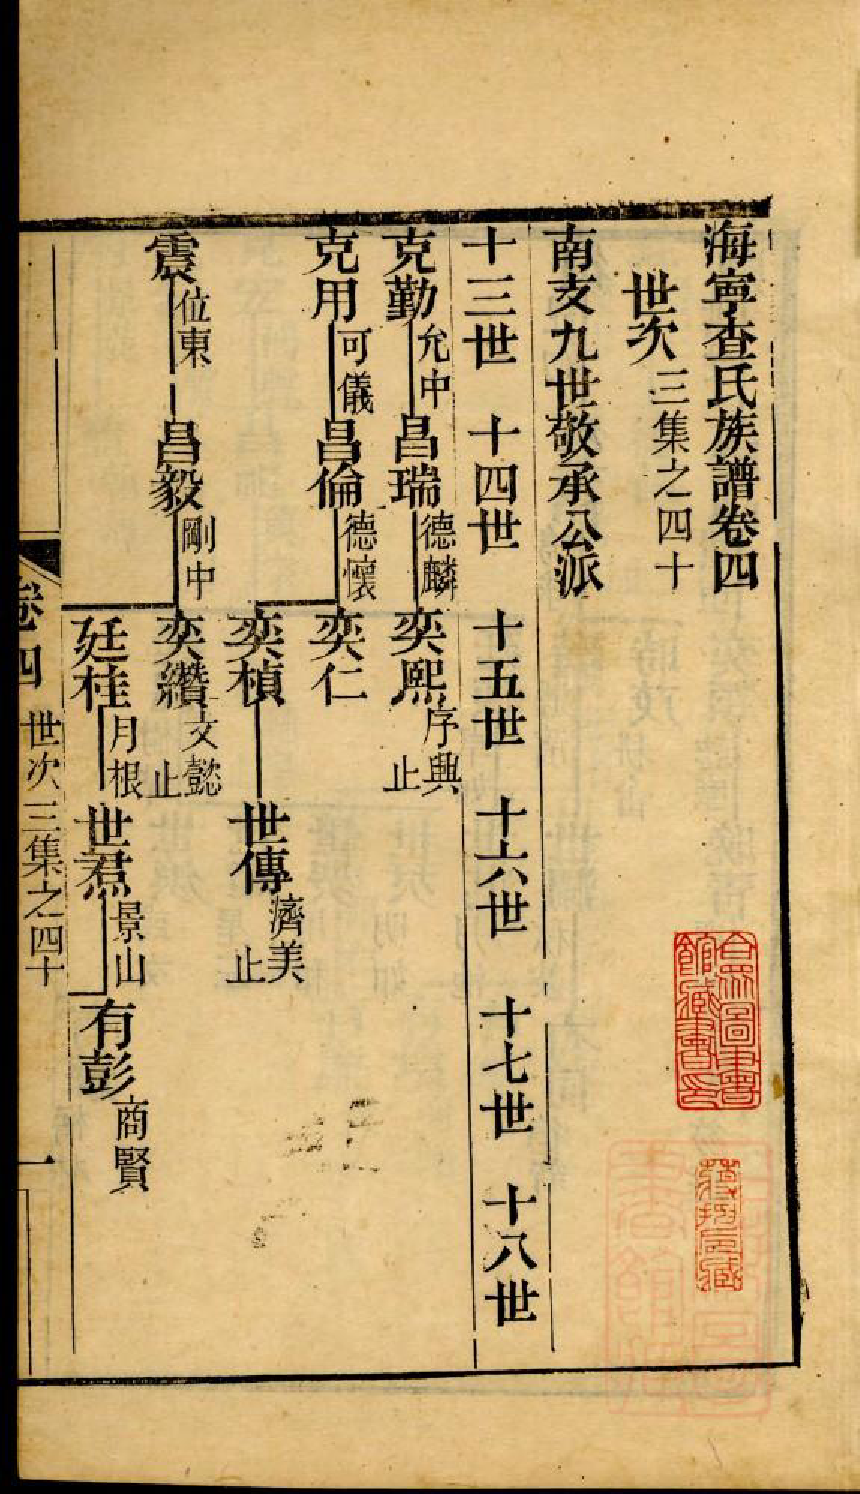 海寧查氏族譜卷四
世次 三集之四十
南支九世敬承公派
十三世 十四世 十五世 十六世 十七世 十八世
克勤 允中 昌瑞 德麟 奕熙 序興 止
克用 可儀 昌倫 德懷 奕仁
奕楨 世傳 濟美 止
震 位東 昌毅 剛中 奕纘 文懿 止
廷桂 月根 世焄 景山 有彭 商賢
卷四 世次三集之四十 一
合眾圖書館藏書印